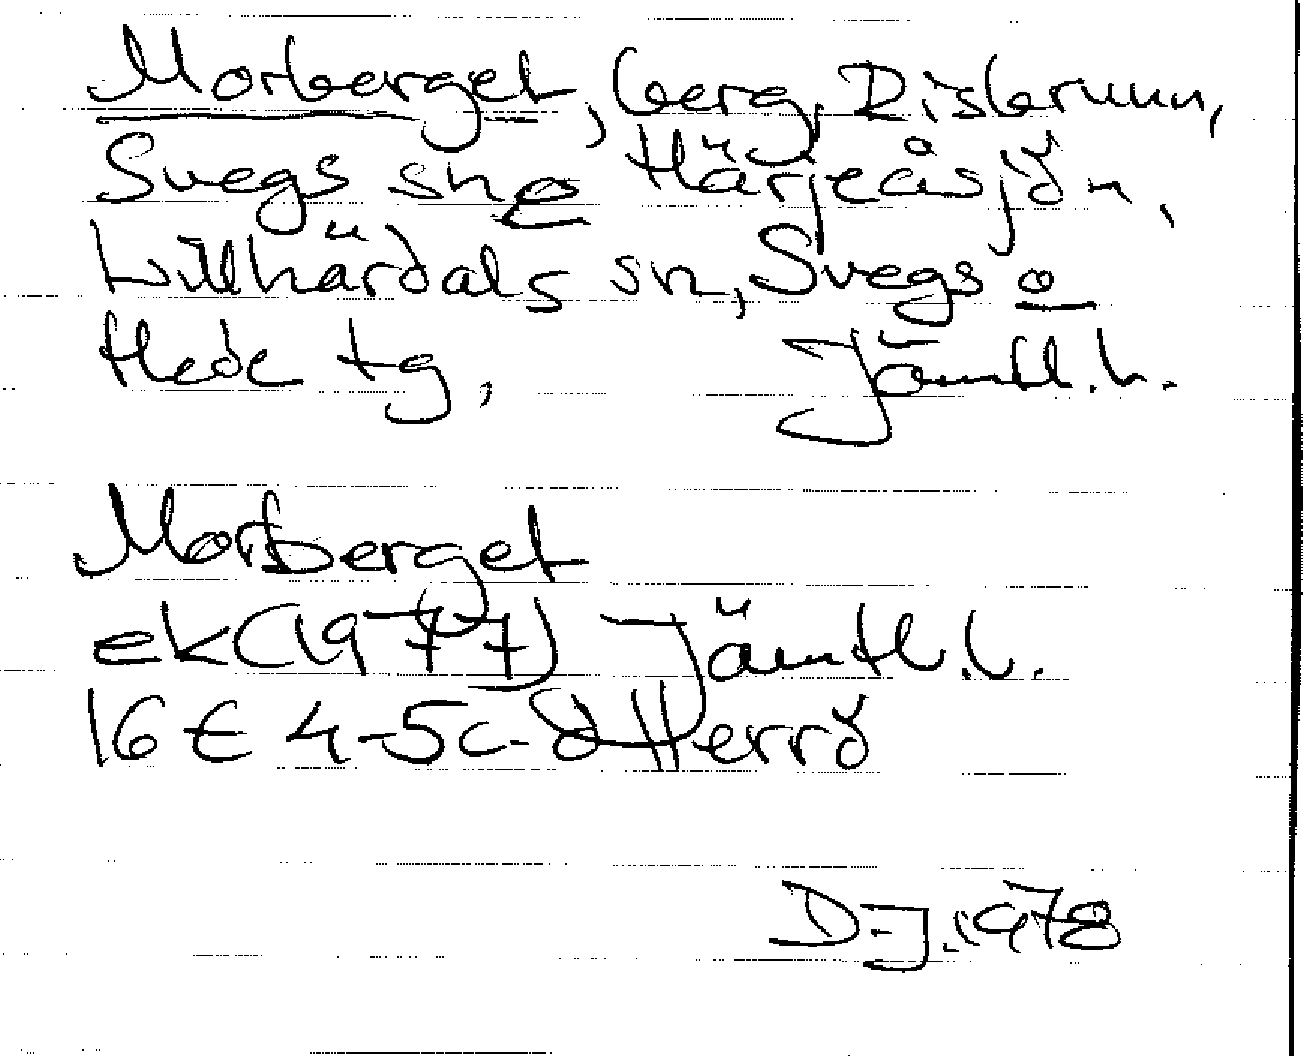 Morberget, berg, Risbrunn,
Svegs sn o Härjeåsjön,
Lillhärdals sn, Svegs o
Hede tg, Jämtl.l.
Morberget
ek(1977) Jämtl.l.
16E 4-5c-d Herrö
D-J.1978